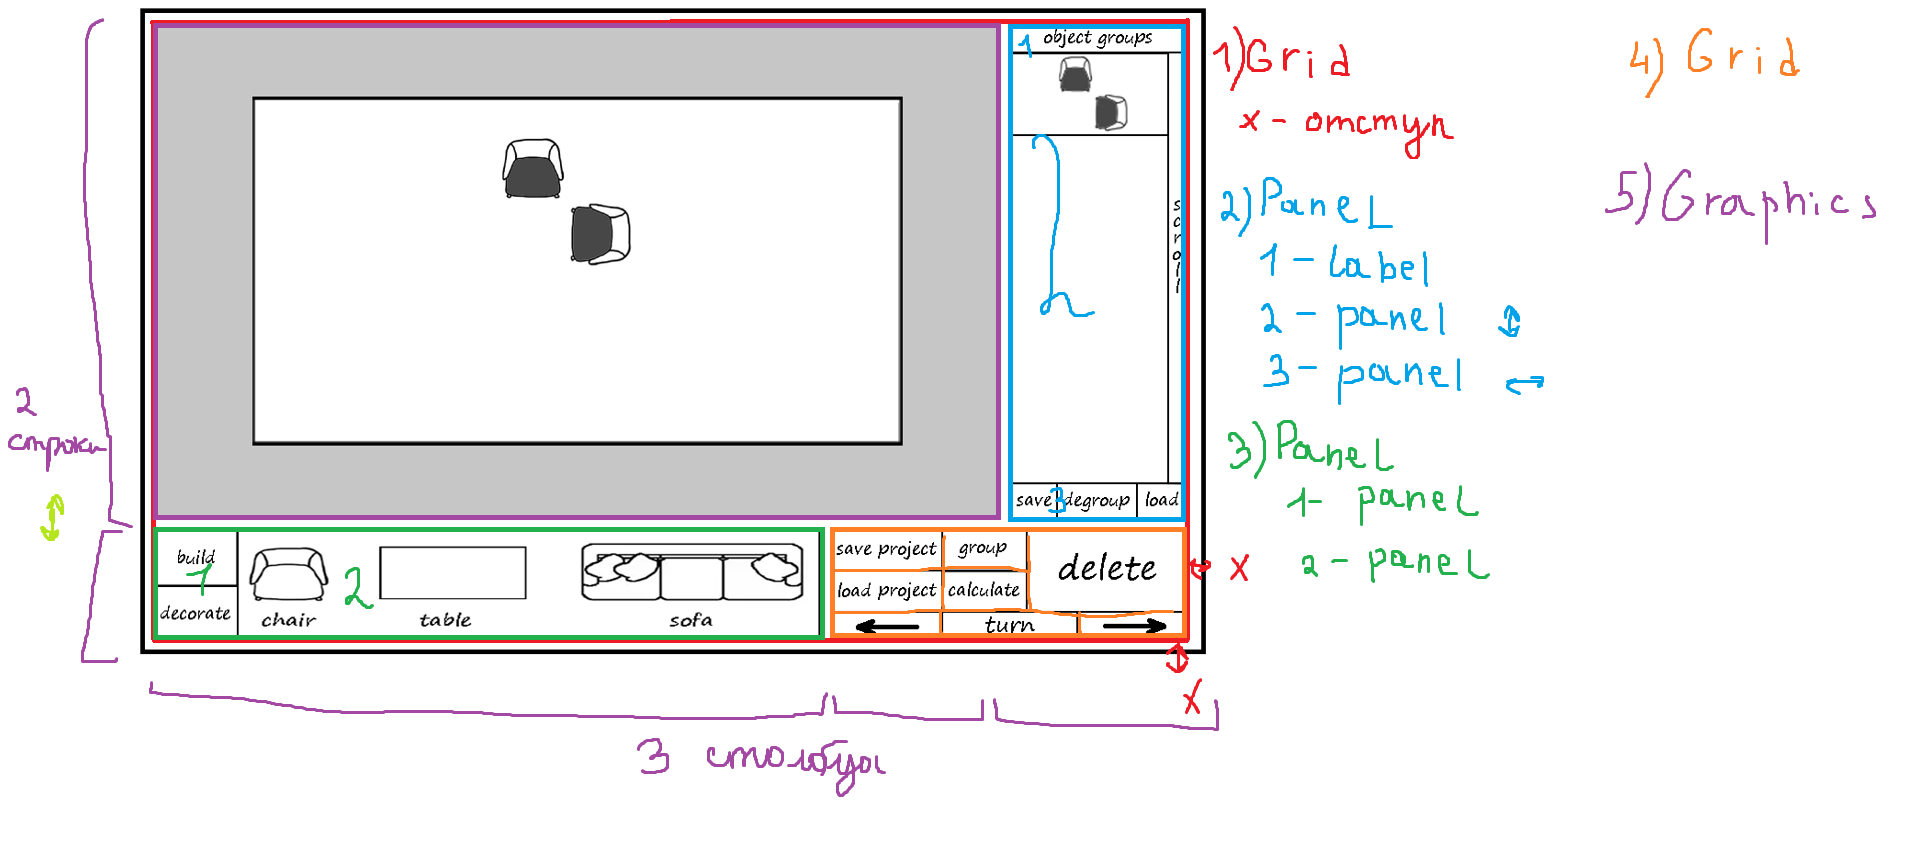 object groups
1
scroll
save
3
degroup
load
2
build
1
decorate
chair
2
table
sofa
save project
group
load project
calculate
delete
turn
2
строки
3 столбцы
x
x
1) Grid
x - отступ
2) Panel
1 - label
2 - panel ↕
3 - panel ↔
3) Panel
1 - panel
2 - panel
4) Grid
5) Graphics